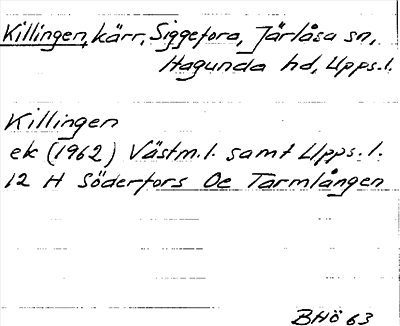 Killingen, kärr, Siggefora, Järlåsa sn,
Hagunda hd, Upps.l.
Killingen
ek (1962) Västm.l. samt Upps.l.
12 H Söderfors Oe Tarmlången
BHÖ 63